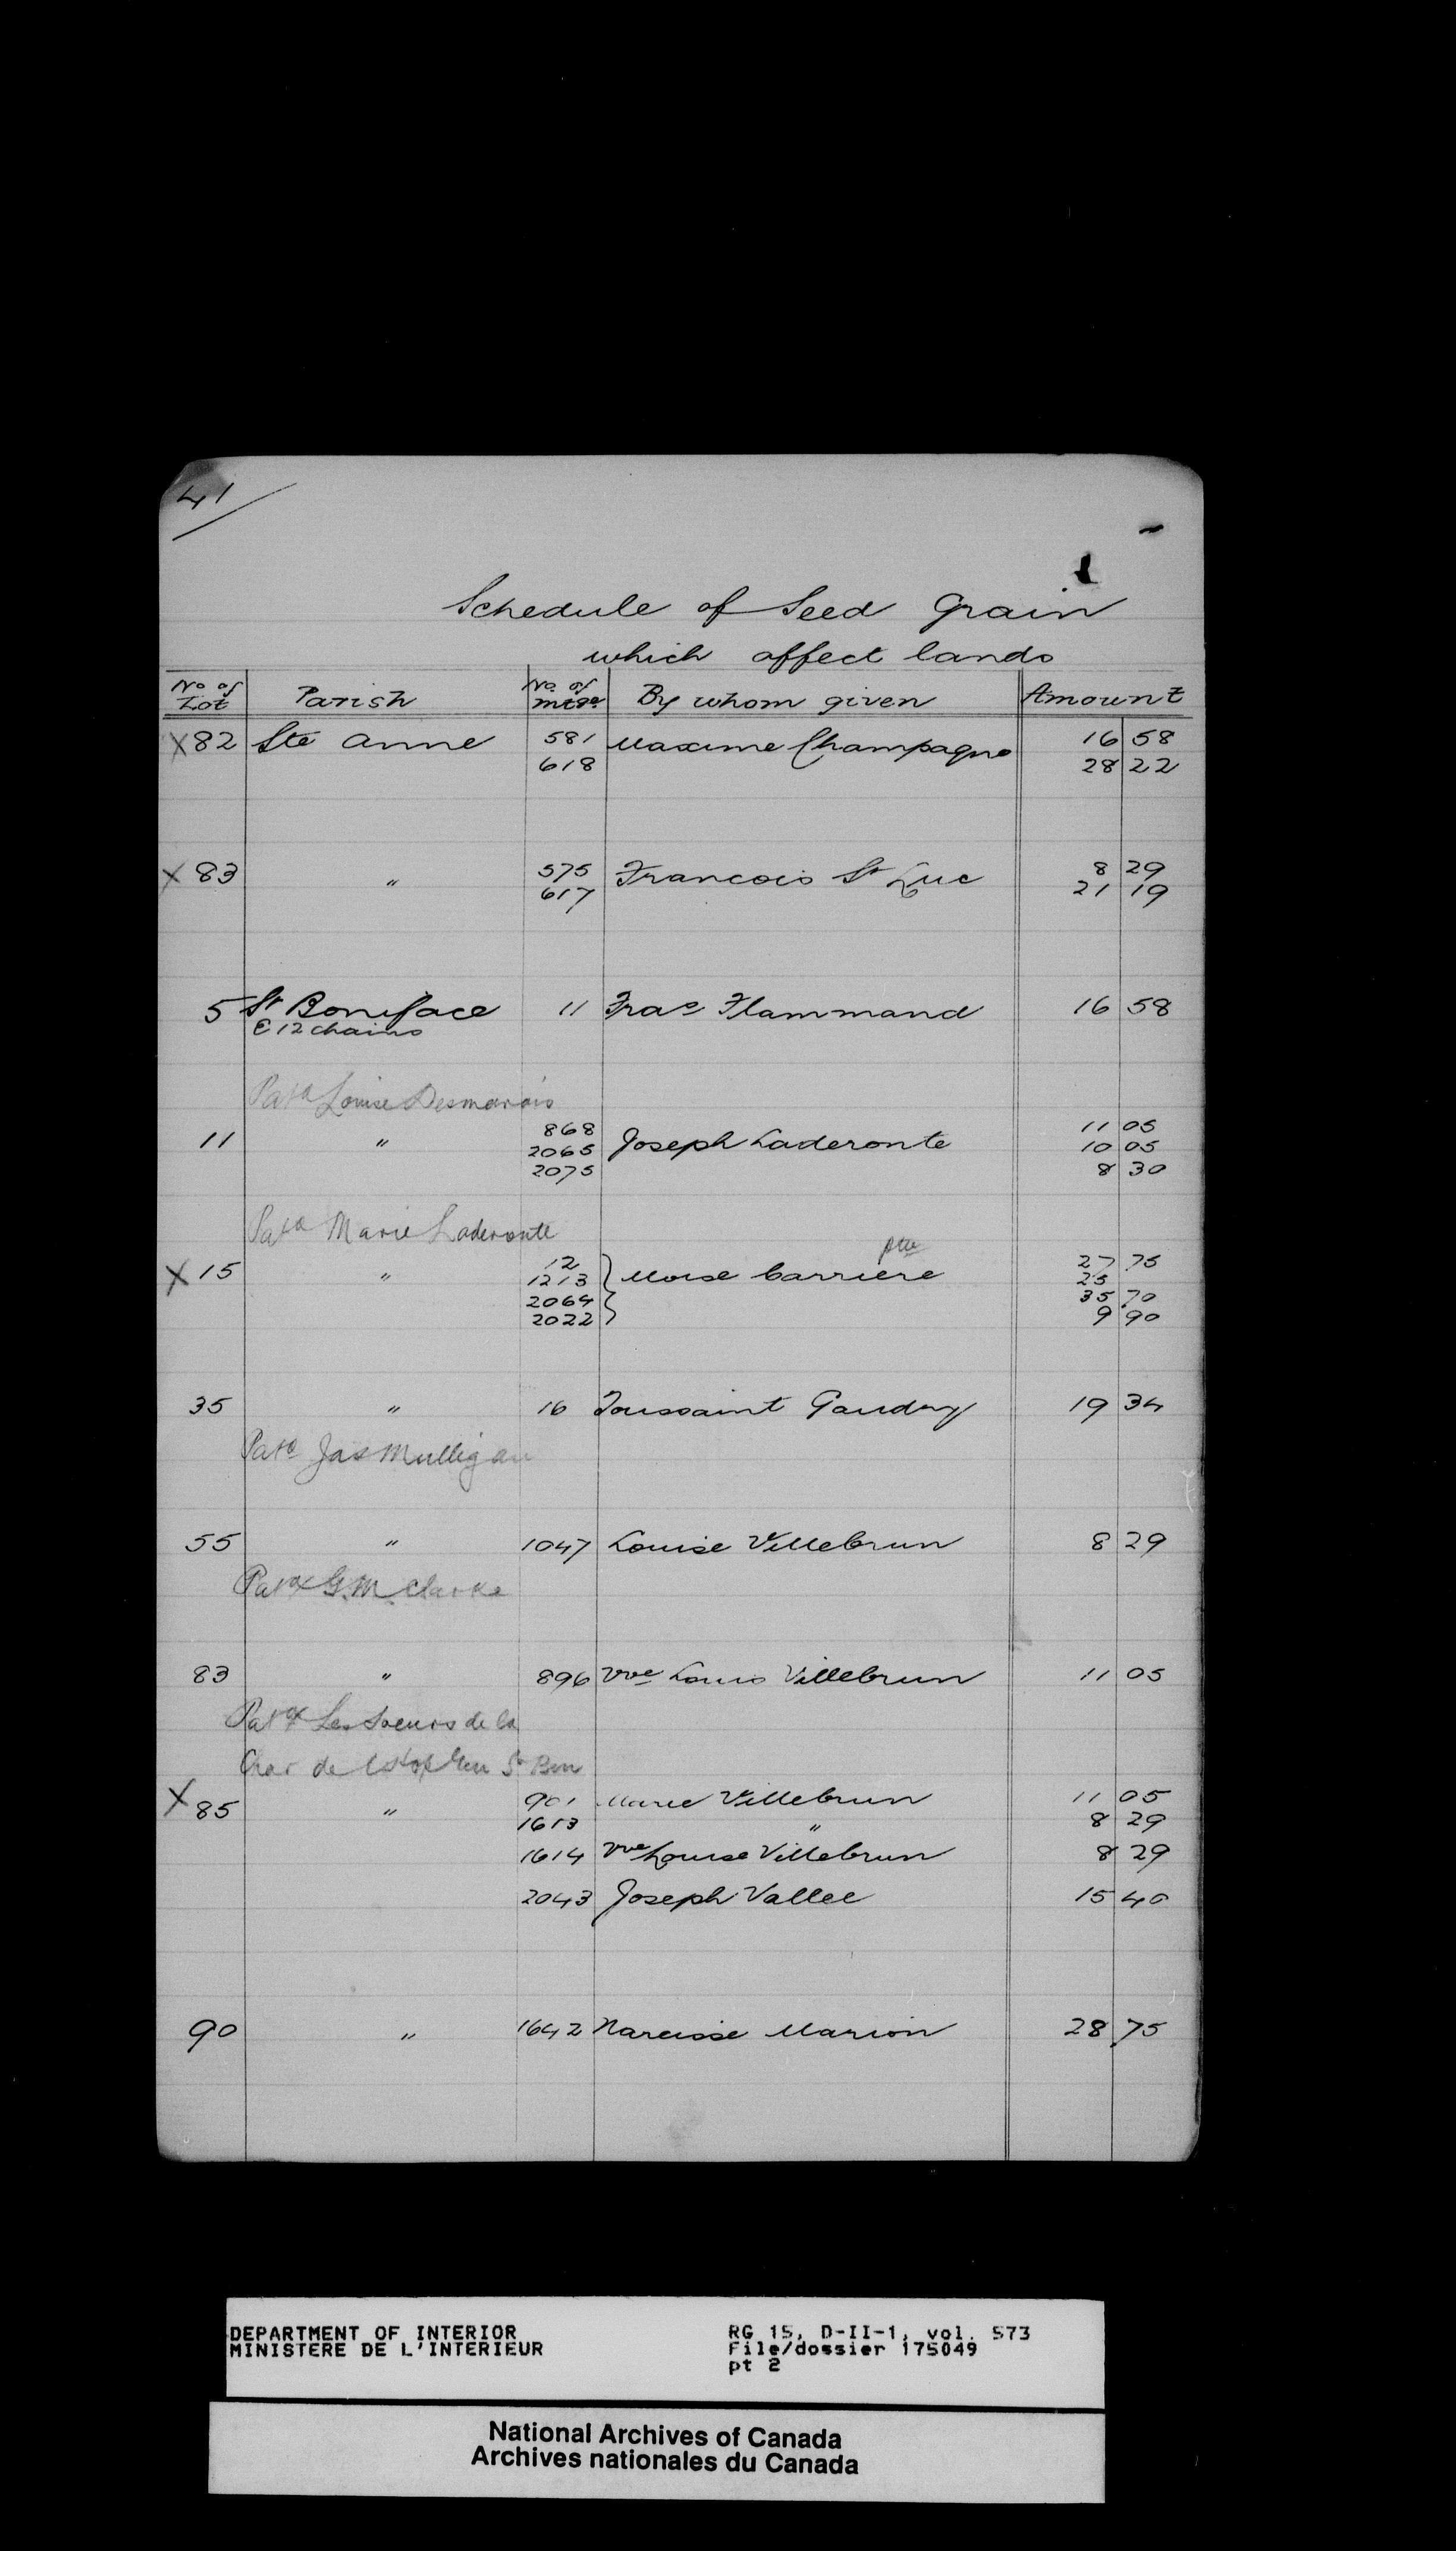 41
Schedule of Seed Grain
which affect lands
No of Lot Parish No. of mtge By whom given Amount
X 82 Ste Anne 581 Maxime Champagne 16 58
618 28 22
X 83 " 575 Francois St Luc 8 29
617 21 19
5 St Boniface 11 Fras Flammand 16 58
E 12 chains
Patd Louise Desmarais
868 11 05
11 " 2065 Joseph Laderonte 10 05
2075 8 30
Patd Marie Laderonte
12 27 75
X 15 " 1213 Moise Carriere 25
2064 35 70
2022 9 90
35 " 16 Toussaint Gaudry 19 34
Patd Jas Mulligan
55 " 1047 Louise Villebrun 8 29
Patd G.M. Clarke
83 " 896 Vve Louis Villebrun 11 05
Patd Les Soeurs de la
Char de l'Hop Gen St Bon
X 85 " 901 Marie Villebrun 11 05
1613 " 8 29
1614 Vve Louise Villebrun 8 29
2043 Joseph Vallee 15 40
90 " 1642 Narcisse Marion 28 75
DEPARTMENT OF INTERIOR
MINISTERE DE L'INTERIEUR
RG 15, D-II-1, vol. 573
File/dossier 175049
pt 2
National Archives of Canada
Archives nationales du Canada